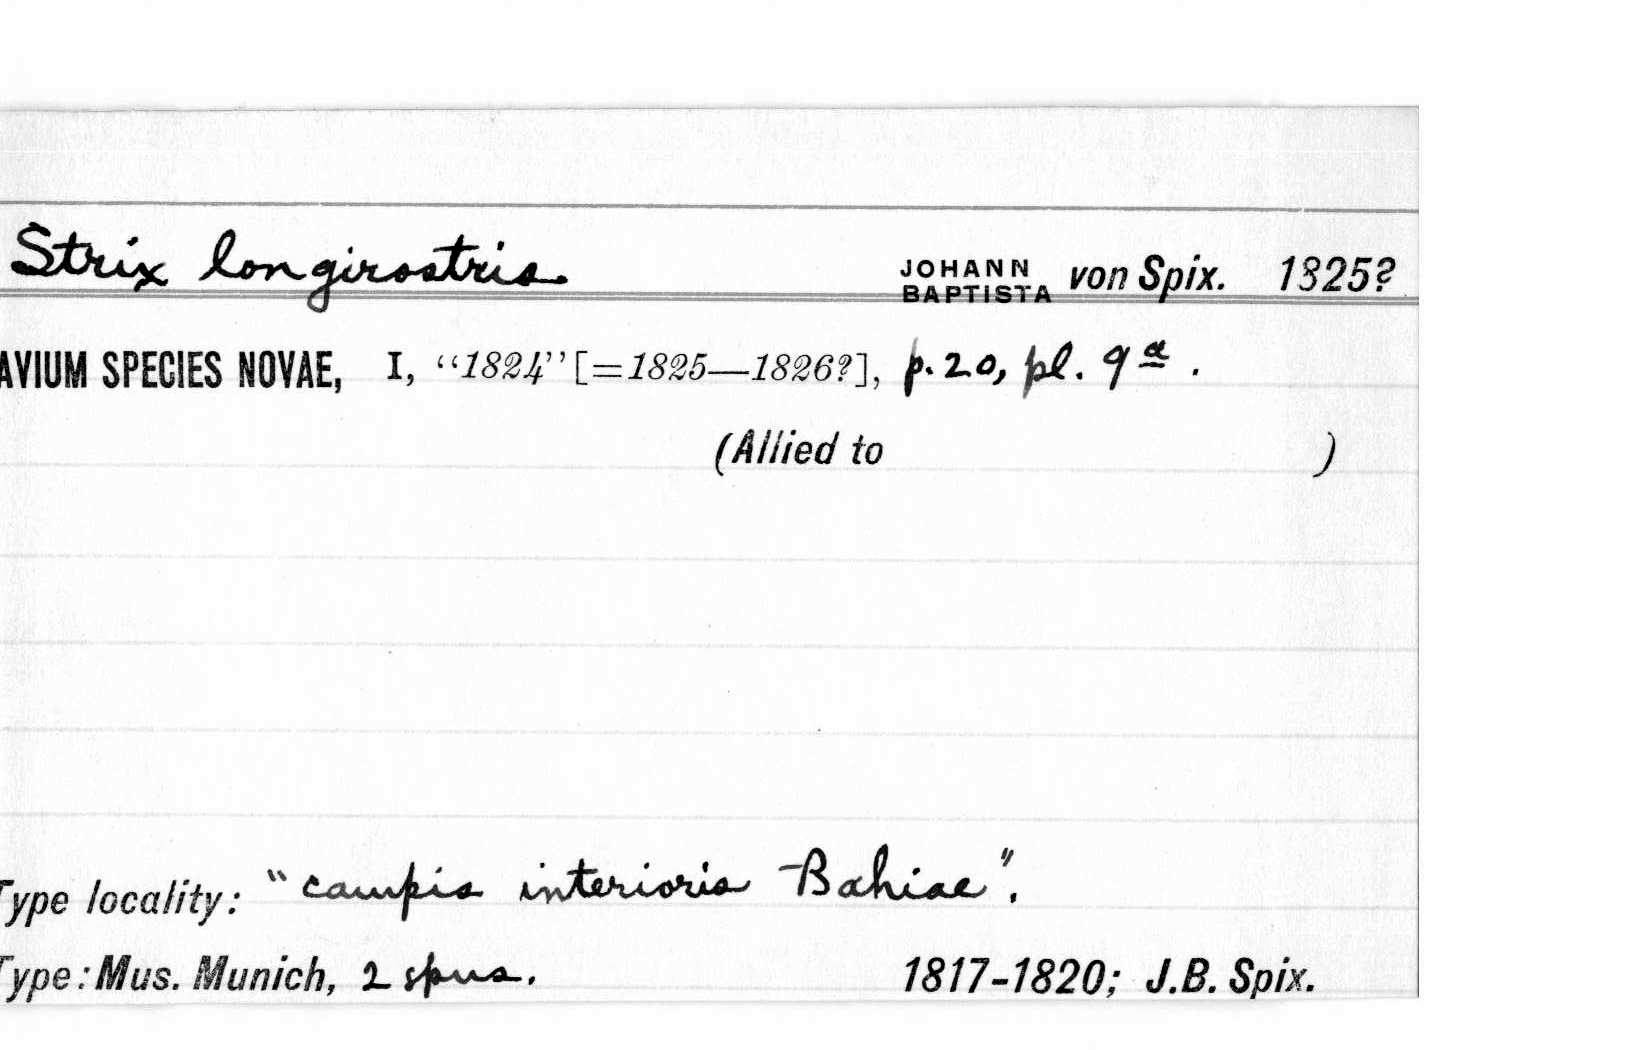 Strix longirostris JOHANN BAPTISTA von Spix. 1825?
AVIUM SPECIES NOVAE, I, “1824” [=1825—1826?], p. 20, pl. 9ª .
(Allied to )
Type locality: “campis interioris Bahiae”.
Type: Mus. Munich, 2 spns. 1817-1820; J.B. Spix.